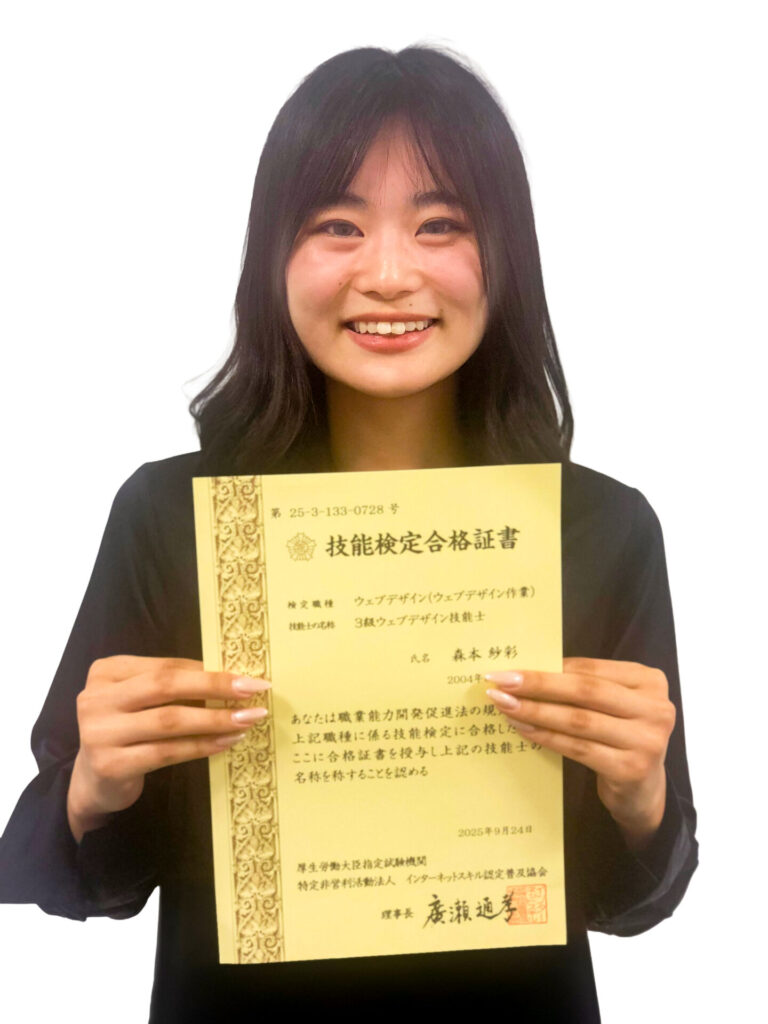 第 25-3-133-0728 号
技能検定合格証書
検定職種 ウェブデザイン(ウェブデザイン作業)
技能士の名称 3級ウェブデザイン技能士
氏名 森本 紗彩
2004年
あなたは職業能力開発促進法の規
上記職種に係る技能検定に合格した
ここに合格証書を授与し上記の技能士の
名称を称することを認める
2025年9月24日
厚生労働大臣指定試験機関
特定非営利活動法人 インターネットスキル認定普及協会
理事長 廣瀬通孝